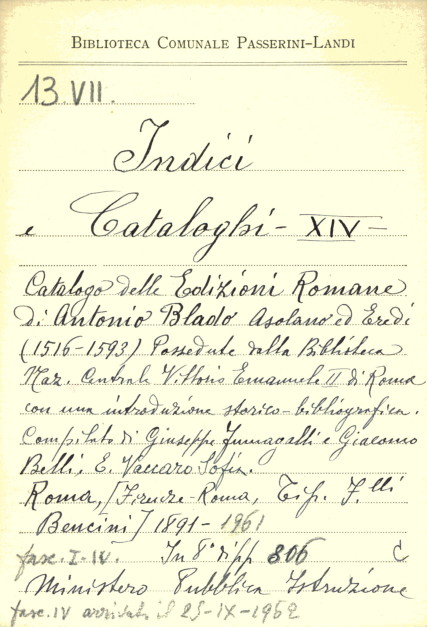 BIBLIOTECA COMUNALE PASSERINI-LANDI
13.VII.
Indici
e Cataloghi - XIV -
Catalogo delle Edizioni Romane
di Antonio Blado Asolano ed Eredi
(1516-1593) Possedute dalla Biblioteca
Naz. Centrale Vittorio Emanuele II di Roma
con una introduzione storico-bibliografica.
Compilato di Giuseppe Fumagalli e Giacomo
Belli, E. Vaccaro Sofia.
Roma, [Firenze-Roma, Tip. F.lli
Bencini] 1891-1961
fasc. I-IV. In 8° di pp 806 C
Ministero Pubblica Istruzione
fasc. IV arrivato il 25-IX-1962